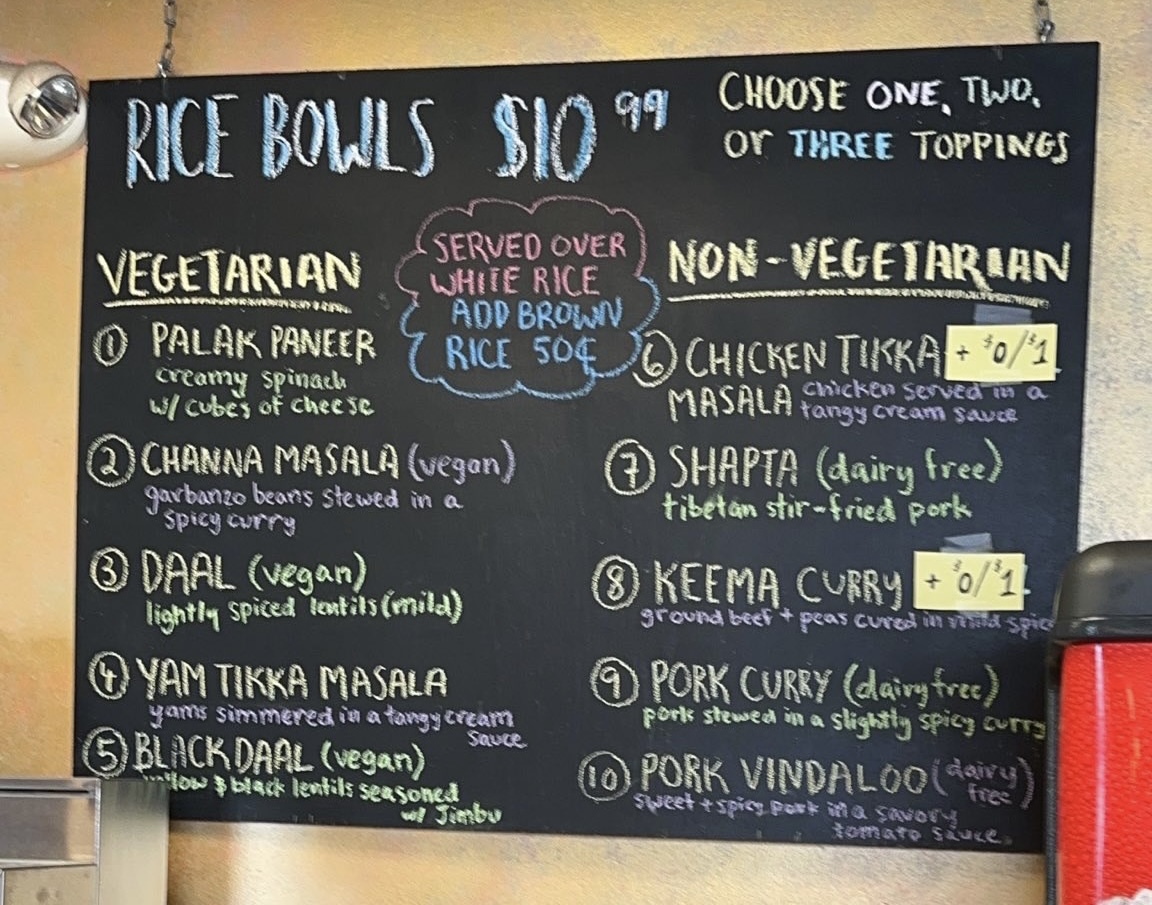 RICE BOWLS $10 99
CHOOSE ONE, TWO,
Or THREE TOPPINGS
SERVED OVER
WHITE RICE
ADD BROWN
RICE 50¢
VEGETARIAN
① PALAK PANEER
creamy spinach
w/ cubes of cheese
② CHANNA MASALA (vegan)
garbanzo beans stewed in a
spicy curry
③ DAAL (vegan)
lightly spiced lentils (mild)
④ YAM TIKKA MASALA
yams simmered in a tangy cream
sauce
⑤ BLACK DAAL (vegan)
& black lentils seasoned
w/ Jimbu
NON-VEGETARIAN
⑥ CHICKEN TIKKA + $0/$1
MASALA chicken served in a
tangy cream sauce
⑦ SHAPTA (dairy free)
tibetan stir-fried pork
⑧ KEEMA CURRY + $0/$1
ground beef + peas cured in mild
⑨ PORK CURRY (dairy free)
pork stewed in a slightly spicy curry
⑩ PORK VINDALOO (dairy
free)
sweet + spicy pork in a savory
tomato sauce.